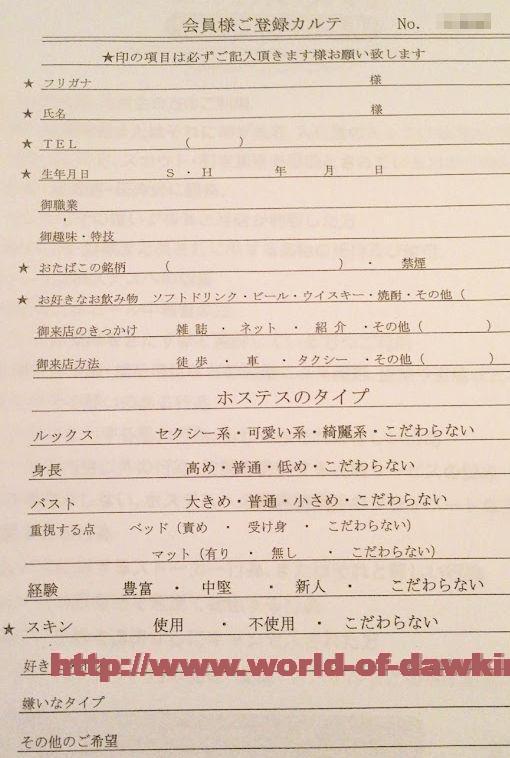 会員様ご登録カルテ No.
★印の項目は必ずご記入頂きます様お願い致します
★ フリガナ 様
★ 氏名 様
★ TEL ( )
★ 生年月日 S・H 年 月 日
御職業
御趣味・特技
★ おたばこの銘柄 ( ) ・ 禁煙
★ お好きなお飲み物 ソフトドリンク・ビール・ウイスキー・焼酎・その他 (
御来店のきっかけ 雑誌 ・ ネット ・ 紹介 ・その他 ( )
御来店方法 徒歩 ・ 車 ・ タクシー ・その他 ( )
ホステスのタイプ
ルックス セクシー系・可愛い系・綺麗系・こだわらない
身長 高め・普通・低め・こだわらない
バスト 大きめ・普通・小さめ・こだわらない
重視する点 ベッド (責め ・ 受け身 ・ こだわらない)
マット (有り ・ 無し ・ こだわらない)
経験 豊富 ・ 中堅 ・ 新人 ・ こだわらない
★ スキン 使用 ・ 不使用 ・ こだわらない
好き
http://www.world-of-dawkin
嫌いなタイプ
その他のご希望